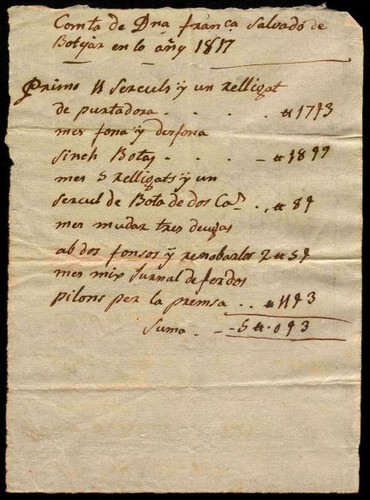 Comta de Dna franca Salvadó de
Botejar en lo añy 1817
Primo 11 Serculs y un relligat
de purtadora . . . . . ₶ 17 ꝯ 3
mes fona y desfona
Sinch Botas . . . . – ₶ 18 ꝯ
mes 5 relligats y un
Sercul de Bota de dos Cas . , ₶ 8 ꝯ
mes mudar tres dougas
ab dos fonsos y renobarlos 2 ₶ 5 ꝯ
mes mix Jurnal de fer dos
pilons per la premsa . . ₶ 11 ꝯ 3
Suma . – – 5 ₶ . 0 ꝯ 3